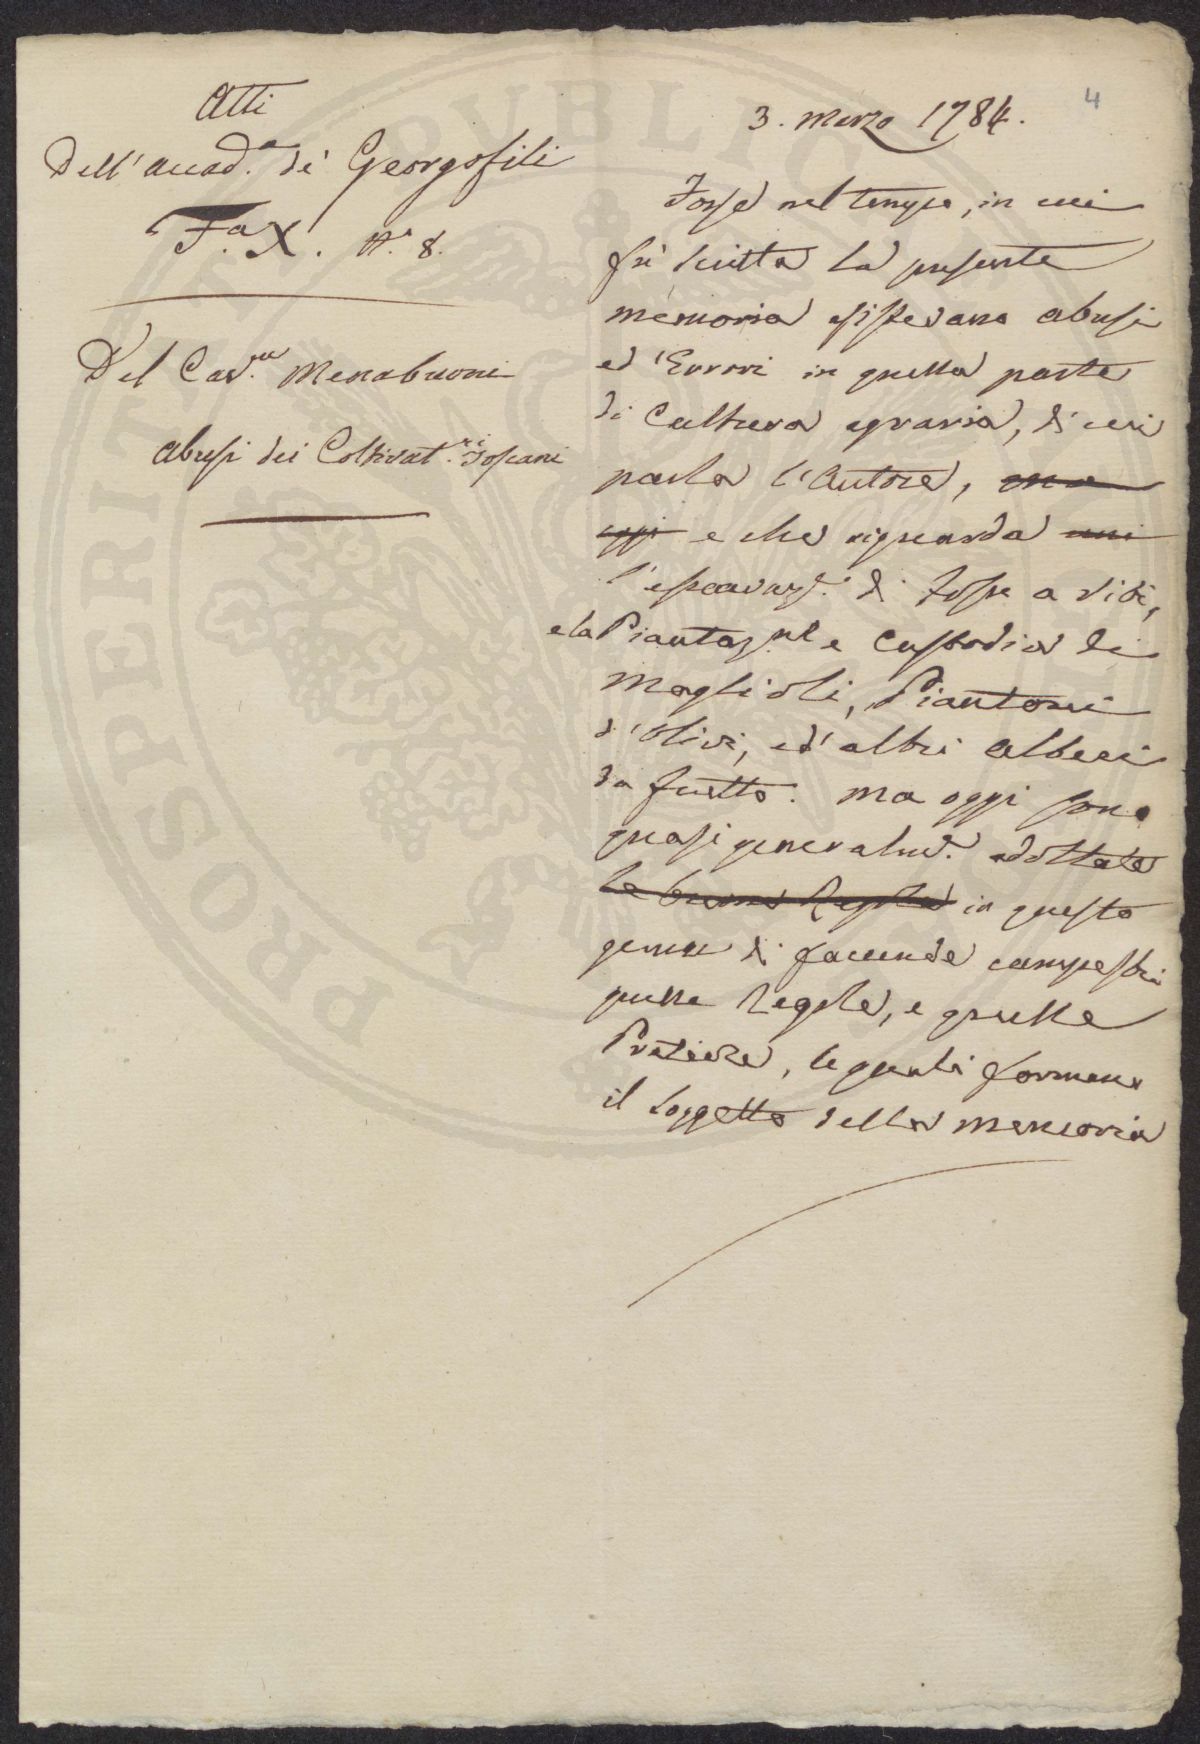 4
Atti
Dell'Accad.a de' Georgofili
F.a X. N.o 8.
Del Cav.re Menabuoni
Abusi dei Coltivat.ri Toscani
3. Marzo 1784.
Forse nel tempo, in cui
fù scritta la presente
memoria esistevano abusi
ed Errori in quella parte
di Cultura agraria, di cui
parla l'Autore, ma
oggi e che riguarda
l'escavaz.e di Fosse a viti,
e la Piantaz.ne e custodia di
Maglioli, Piantoni
d'Olivi, ed altri Alberi
da frutto. Ma oggi sono
quasi generalm.e adottate
le buone Regole in questo
genere di faccende campestri
quelle Regole, e quelle
Pratiche, le quali formano
il soggetto della Memoria
PUBLICAE
PROSPERITATI